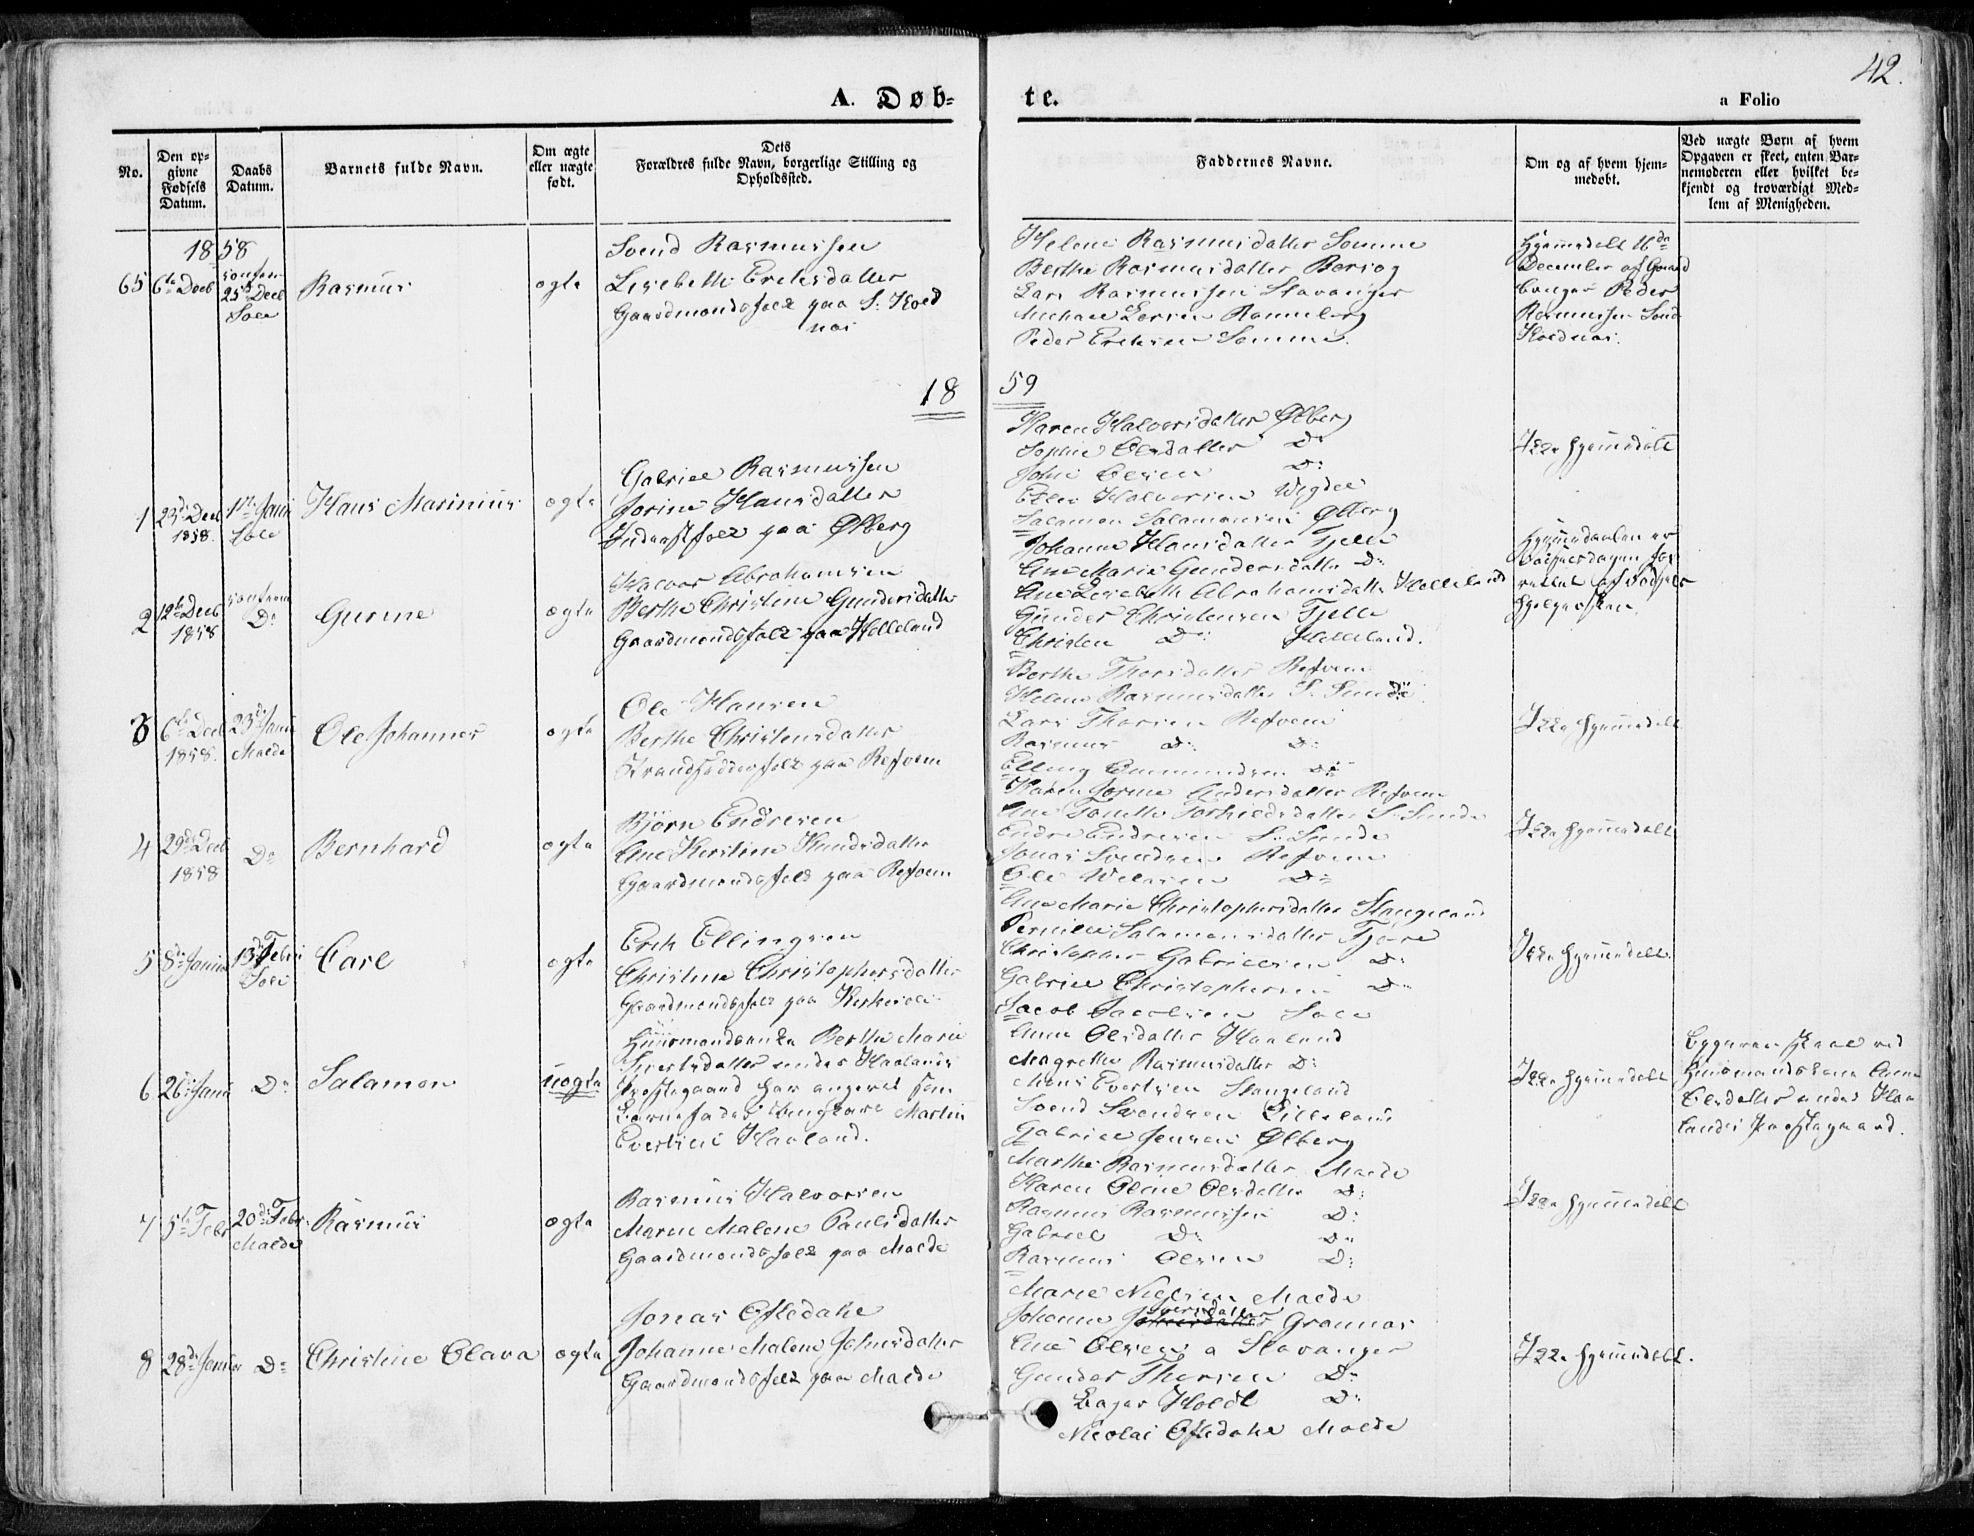 42.
A. Døb-
te.
a Folio
No.
Den op-
givne
Fødsels
Datum.
Daabs
Datum.
Barnets fulde Navn.
Om ægte
eller uægte
født.
Dets
Forældres fulde Navn, borgerlige Stilling og
Opholdssted.
Faddernes Navne.
Om og af hvem hjem-
medøbt.
Ved uægte Børn af hvem
Opgaven er skeet, enten Bar-
nemoderen eller hvilket be-
kjendt og troværdigt Med-
lem af Menigheden.
1858
65 6te Decb
25de Decb
Sole
Rasmus
ægte
Svend Rasmussen
Lisebeth Eriksdatter
Gaardmandsfolk paa S: Kol
nes
Helene Rasmusdatter Somme
Berthe Rasmusdatter
Lars Rasmussen Stavanger
Michael Larsen Ramneberg
Peder Eriksen Somme.
Hjemmedøbt 16de
December af Gaard
bruger Peder
Rasmussen Sond
Kolnes.
1859
1 23de Decb
1858.
1ste Janr
Sole
Hans Marinius
ægte
Gabriel Rasmussen
Jorine Hansdatter
Inderstfolk paa Ølberg
Karen Halvorsdatter Ølberg
Sophie Olsdatter Do
John Olsen Do
Halvorsen Wigdel
Salamon Salamonsen Ølberg
Ikke hjemmedøbt
2 12te Decb
1858
Do
Gurine
ægte
Halvor Abrahamsen
Berthe Christine Gundersdatter
Gaardmandsfolk paa Helleland
Johanne Hansdatter Tjelle
Ane Marie Gundersdatter Do
Ane Lisebeth Abrahamsdatter Helleland
Gunder Christensen Tjelle
Christen Do Helleland.
Hjemmedaaben er
3 6te Decb
1858.
23de Janr
Malde
Ole Johannes
ægte
Ole Hansen
Berthe Christensdatter
Strandsidderfolk paa Refvem
Berthe Thorsdatter Refvem
Helene Rasmusdatter S. Sunde
Lars Thorsen Refvem
Rasmus Do Do
Elling Ommundsen Do
Ikke hjemmedøbt
4 29de Decb
1858
Do
Bernhard
ægte
Bjørn Endresen
Ane Kirstine Knudsdatter
Gaardmandsfolk paa Refvem
Karen Jorine Andersdatter Refvem
Ane Tonette Torkieldsdatter S. Sunde
Endre Endresen S. Sunde
Jonas Svendsen Refvem
Ole Do
Ikke hjemmedøbt
5 8de Janr
13de Febr
Sole
Carl
ægte
Erik Ellingsen
Christine Christophersdatter
Gaardmandsfolk paa
Ane Marie Christophersdatter Stangeland
Pernille Salamonsdatter Tjøre
Christopher Gabrielsen Do
Gabriel Christophersen Do
Jacob Jacobsen Sole
Ikke hjemmedøbt
6 26de Janr
Do
Salamon
uægte
Huusmandsenke Berthe Marie
Sivertsdatter under Haalands
Præstegaard har angivet som
Barnefader Ungkarl Martin
Evertsen Haaland.
Anne Olsdatter Haaland
Magrethe Rasmusdatter Do
Mons Evertsen Stangeland
Svend Svendsen
Gabriel Jensen Ølberg
Ikke hjemmedøbt
Opgaven skeet ved
Huusmandskone Anne
Olsdatter under Haa
lands Præstegaard.
7 5te Febr
20de Febr
Malde
Rasmus
ægte
Rasmus Halvorsen
Maren Malene Paulsdatter
Gaardmandsfolk paa Malde
Marthe Rasmusdatter Malde
Karen Oline Olsdatter Do
Rasmus Rasmussen Do
Gabriel Do Do
Rasmus Olsen Do
Ikke hjemmedøbt
8 28de Janr
Do
Christine Olava
ægte
Jonas Oftedahl
Johanne Malene Johnsdatter
Gaardmandsfolk paa Malde
Marie Nielsen Malde
Johanne Iversdatter Grannes
Ane Olsen a Stavanger
Gunder Thorsen Do
Do
Nicolai Oftedahl Malde
Ikke hjemmedøbt.